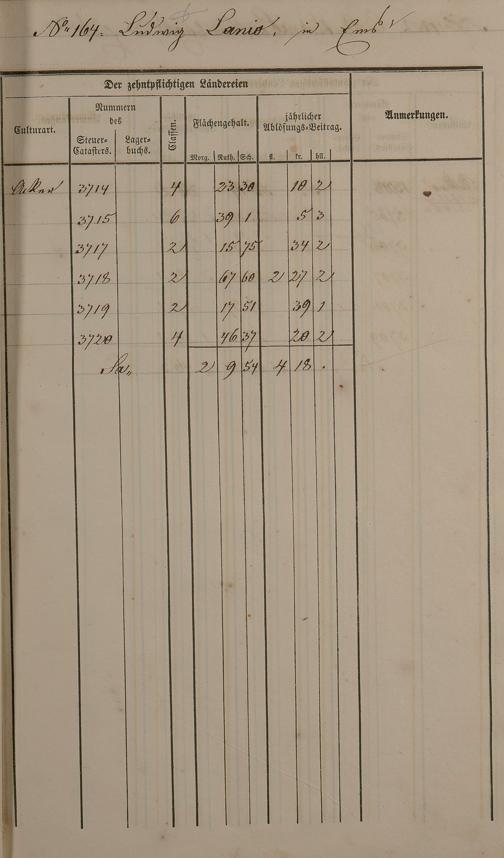 No. 164. Ludwig Lanio, in Ems
Der zehntpflichtigen Ländereien
Culturart.
Nummern des
Steuer-Catasters.
Lager-buchs.
Classen.
Flächengehalt.
Morg. Ruth. Sch.
jährlicher Ablösungs-Beitrag.
fl. kr. hll.
Anmerkungen.
Acker 3714 4 23 30 10 2
3715 6 39 1 5 3
3717 2 15 75 34 2
3718 2 67 60 2 27 2
3719 2 17 51 39 1
3720 4 46 37 20 2
Sa. 2 9 54 4 18 .